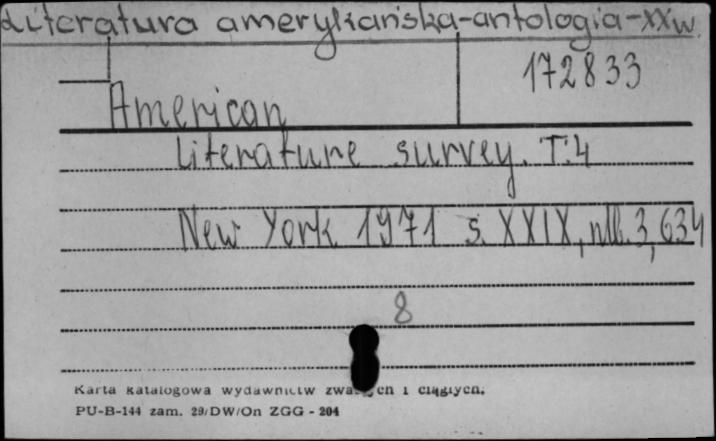 Literatura amerykańska-antologia-XXw.
172833
American
Literature survey. T.4
New York 1971 s. XXIX, nlb. 3, 634
8
Karta katalogowa wydawnictw zwartych i ciągłych.
PU-B-144 zam. 29/DW/On ZGG - 204